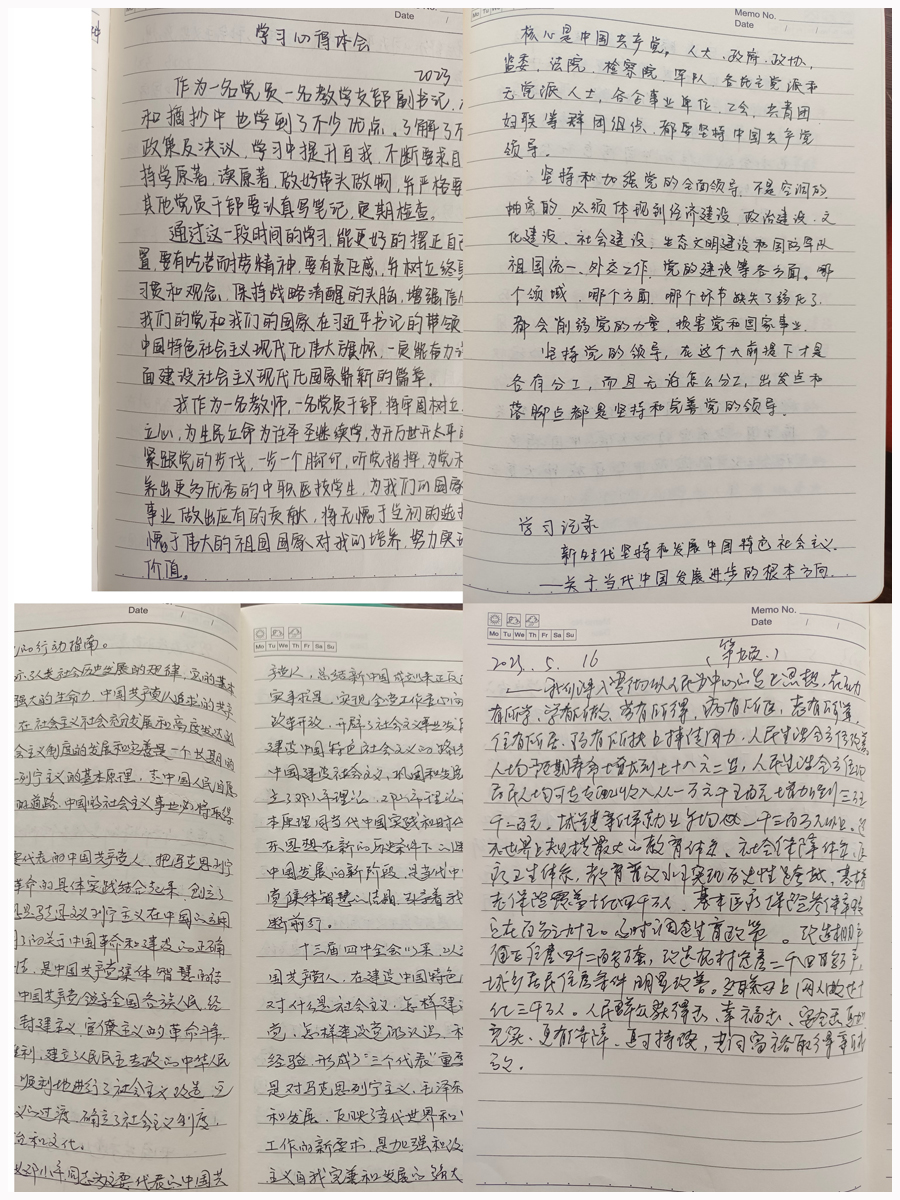 Date
学习心得体会
2023
作为一名党员一名教学支部副书记,
和摘抄中也学到了不少优点。了解了不
政策及决议,学习中提升自我,不断要求自
持学原著、读原著,做好带头做物,并严格要
其他党员干部要认真写笔记,定期检查。
通过这一段时间的学习,能更好的摆正自己
置,要有吃苦耐劳精神,要有责任感,并树立终身
习惯和观念、保持战略清醒的头脑,增强信
我们的党和我们的国家在习近平书记的带领
中国特色社会主义现代化伟大旗帜,一定能奋力
面建设社会主义现代化国家崭新的篇章。
我作为一名教师,一名党员干部,将牢固树立
立心,为生民立命为往圣继续学,为开万世开太平
紧跟党的步伐,一步一个脚印,听党指挥,为党
养出更多优秀的中职医技学生,为我们的国家
事业做出应有的贡献,将无愧于当初的选择
愧于伟大的祖国国家对我的培养,努力实
价值。
Memo No.
Date
核心是中国共产党。人大、政府、政协,
监委、法院、检察院、军队、各民主党派和
无党派人士,各企事业单位、工会、共青团
妇联等群团组织,都要坚持中国共产党
领导。
坚持和加强党的全面领导,不是空洞的
抽象的,必须体现到经济建设、政治建设、文
化建设、社会建设、生态文明建设和国防军队
祖国统一、外交工作、党的建设等各方面。哪
个领域、哪个方面、哪个环节缺失了弱化了,
都会削弱党的力量,损害党和国家事业。
坚持党的领导,在这个大前提下才是
各有分工,而且无论怎么分工,出发点和
落脚点都是坚持和完善党的领导。
学习记录
新时代坚持和发展中国特色社会主义.
——关于当代中国发展进步的根本方向
Date
行动指南。
示了人类社会历史发展的规律,它的基本
强大的生命力。中国共产党人追求的共产
在社会主义社会充分发展和高度发达的
会主义制度的发展和完善是一个长期的
列宁主义的基本原理,走中国人民自愿
的道路,中国的社会主义事业必将取得
要代表的中国共产党人,把马克思列宁
革命的具体实践结合起来,创立了
思想是马克思列宁主义在中国的运用
了的关于中国革命和建设的正确
结,是中国共产党集体智慧的结
中国共产党领导全国各族人民,经
封建主义、官僚主义的革命斗争,
胜利,建立人民民主专政的中华人民
顺利地进行了社会主义改造,完
义的过渡,确立了社会主义制度,
治和文化。
以邓小平同志为主要代表的中国共
Mo Tu We Th Fr Sa Su
产党人,总结新中国成立以来正反
实事求是,实现全党工作重心向
改革开放,开辟了社会主义事业发
建设中国特色社会主义的路
中国建设社会主义,巩固和发展
立了邓小平理论。邓小平理论
本原理同当代中国实践和时代
东思想在新的历史条件下的
中国发展的新阶段,是当代中
党集体智慧的结晶,引导着我
断前行。
十三届四中全会以来,以江
国共产党人,在建设中国特色
对什么是社会主义、怎样建
党,怎样建设党的认识,
经验,形成了“三个代表”重要
是对马克思列宁主义,毛泽东
和发展,反映了当代世界和
工作的新要求,是加强和改
主义自我完善和发展的强大
Mo Tu We Th Fr Sa Su
Memo No.
Date
2023. 5. 16
——我们深入贯彻以人民为中心的发展思想,在幼
有所育、学有所教、劳有所得、病有所医、老有所养、
住有所居、弱有所扶上持续用力,人民生活全方位改善。
人均预期寿命增长到七十八点二岁,
居民人均可支配收入从一万六千五百元增加到三万五
千一百元。城镇新增就业年均一千三百万人以上。
世界上规模最大的教育体系、社会保障体系、医
疗卫生体系,教育普及水平实现历史性跨越,基本养
老保险覆盖十亿四千万人,基本医疗保险参保率稳
定在百分之九十五。及时调整生育政策。改造棚户
区住房四千二百多万套,改造农村危房二千四百多万户,
城乡居民住房条件明显改善。互联网上网人数达十
亿三千万人。人民群众获得感、幸福感、安全感更加
充实、更有保障、更可持续,共同富裕取得新
成效。